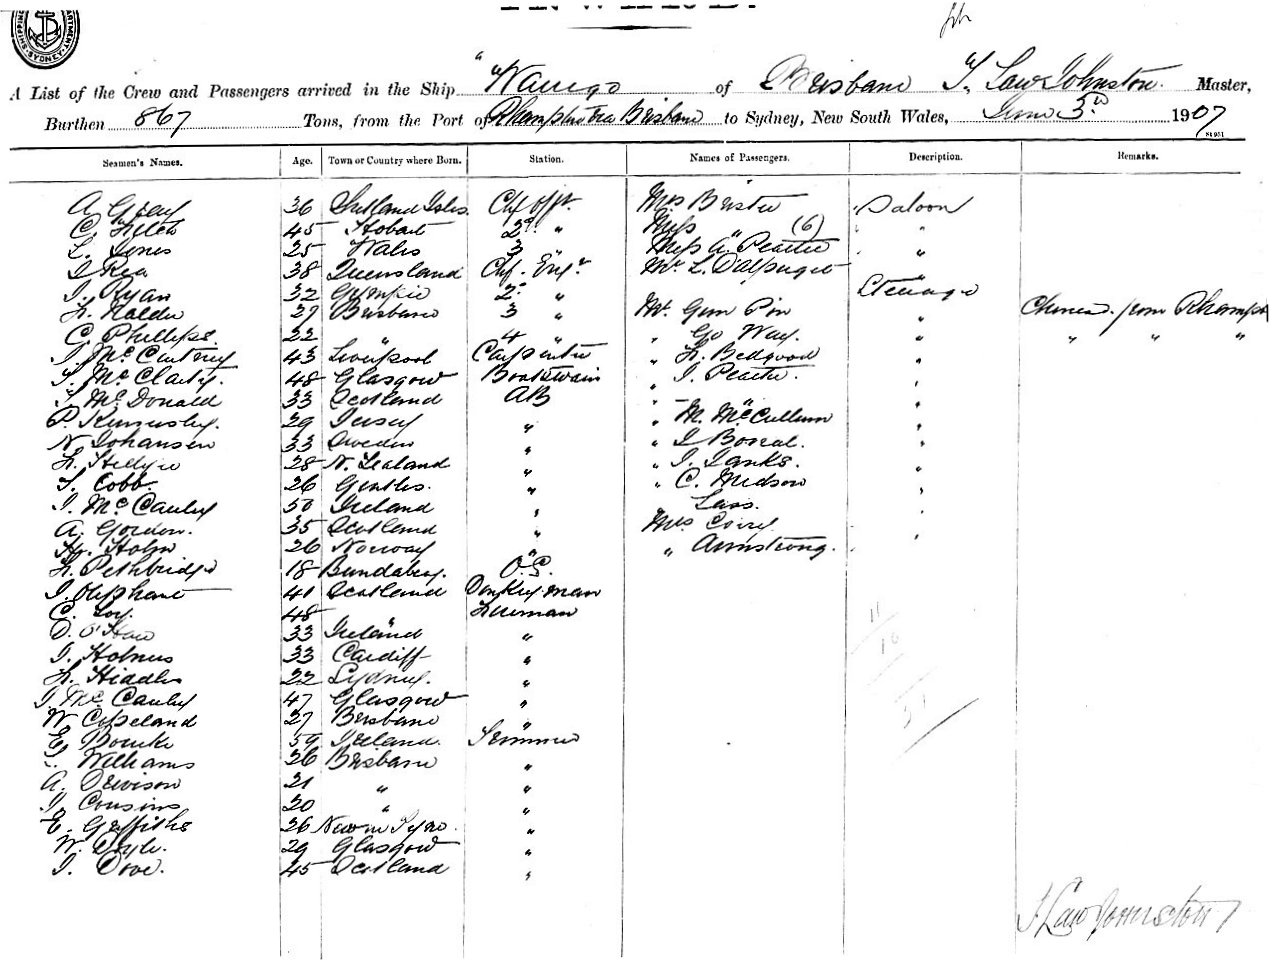 INWARD.
DEPARTMENT SHIPPING SYDNEY
A List of the Crew and Passengers arrived in the Ship "Warrego" of Brisbane T. Law Johnston. Master,
Burthen 867 Tons, from the Port of Rhampton via Brisbane to Sydney, New South Wales, June 3rd 1907
Seamen's Names. Age. Town or Country where Born. Station. Names of Passengers. Description. Remarks.
A. 36 Shetland Isles Chf Offr. Mrs Saloon
C. 45 Hobart 2d " Miss " (6) " "
L. Jones 25 Wales 3 " Miss A. " "
J Rea 38 Queensland Chf. Engr. Mr. L. "
J. Ryan 32 Gympie 2d " Steerage
27 Brisbane 3 " Mr. Gum Pin " Chinese from Rhampton
C. Phillips. 22 " 4 " " Go Way. " " " "
J. McCartney 43 Liverpool Carpenter " H. Bedgood "
J. McClarty. 48 Glasgow Boatswain " J. "
J. McDonald 33 Scotland AB "
P. 29 Jersey " " M. McCullum "
N. Johansen 33 Sweden " " J "
28 N. Zealand " " J. Janks. "
J. Cobb. 26 " " C. Midson "
J. McCauley 50 Ireland " Lass. "
A. Gordon. 35 Scotland " Mrs "
H. Holm 26 Norway " " Armstrong.
H. Pethbridge 18 Bundaberg. O.S.
J. Oliphant 41 Scotland Donkeyman
C. 48 " Fireman
33 Ireland "
J. Holmes 33 Cardiff "
22 Sydney. "
J. McCauley 47 Glasgow "
W Copeland 27 Brisbane "
E. Bourke 59 Ireland. Trimmer
Williams 26 Brisbane "
A. 21 " "
J. Cousins 20 " "
E. Griffiths 26 "
W. Doyle. 29 Glasgow "
J. Dove. 45 Scotland "
T Law Johnston